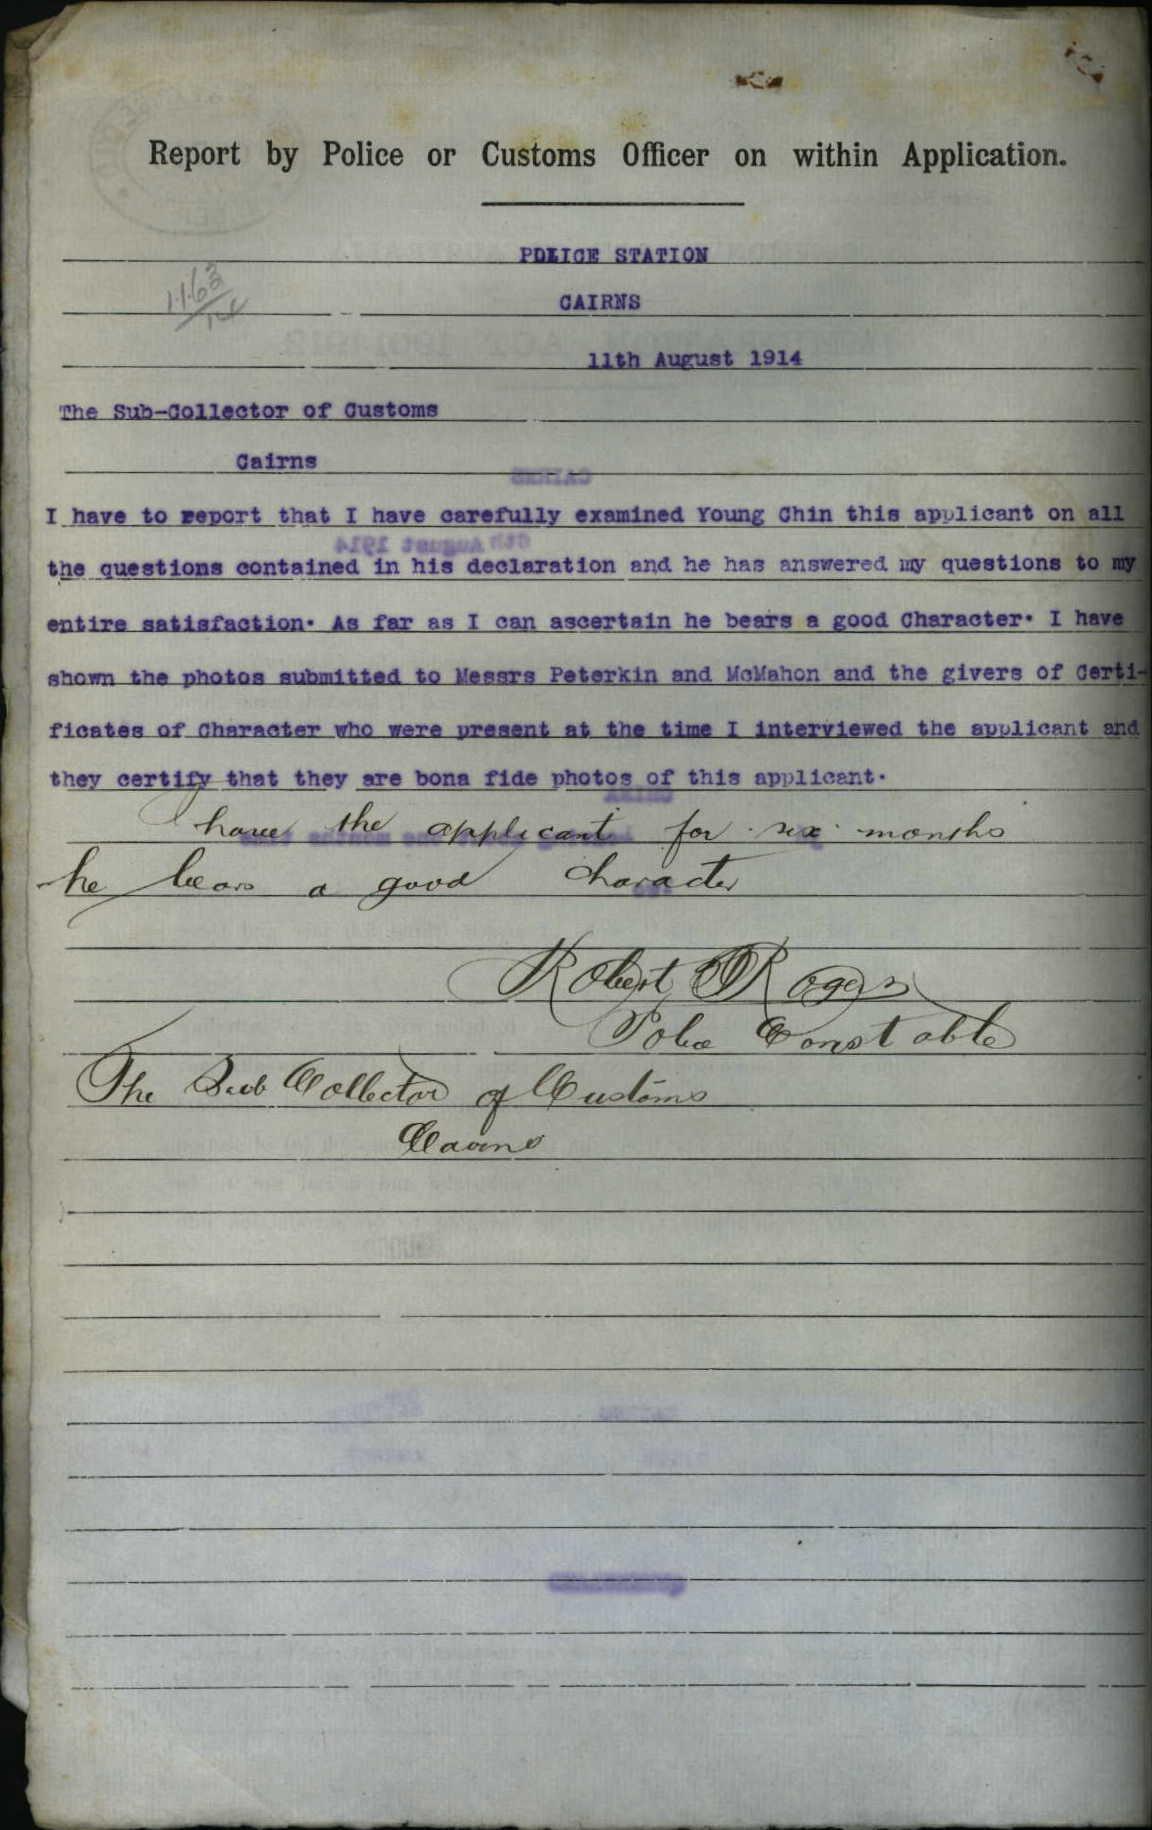 Report by Police or Customs Officer on within Application.
POLICE STATION
CAIRNS
1163/14
11th August 1914
The Sub-Collector of Customs
Cairns
I have to report that I have carefully examined Young Chin this applicant on all
the questions contained in his declaration and he has answered my questions to my
entire satisfaction. As far as I can ascertain he bears a good Character. I have
shown the photos submitted to Messrs Peterkin and McMahon and the givers of Certi-
ficates of Character who were present at the time I interviewed the applicant and
they certify that they are bona fide photos of this applicant.
I have the applicant for six months
he bears a good character
Robert Rogers
Police Constable
The Sub Collector of Customs
Cairns